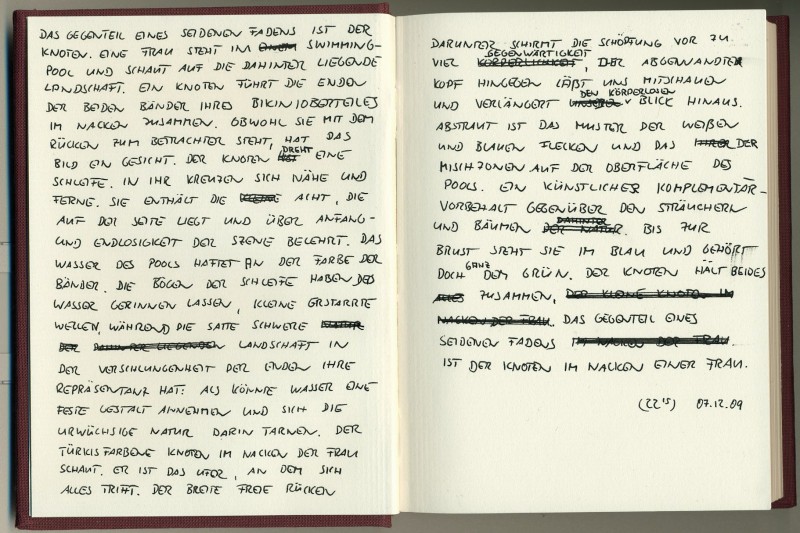 DAS GEGENTEIL EINES SEIDENEN FADENS IST DER
KNOTEN. EINE FRAU STEHT IM EINEM SWIMMING-
POOL UND SCHAUT AUF DIE DAHINTER LIEGENDE
LANDSCHAFT. EIN KNOTEN FÜHRT DIE ENDEN
DER BEIDEN BÄNDER IHRES BIKINIOBERTEILES
IM NACKEN ZUSAMMEN. OBWOHL SIE MIT DEM
RÜCKEN ZUM BETRACHTER STEHT, HAT DAS
BILD EIN GESICHT. DER KNOTEN DREHT EINE
SCHLEIFE. IN IHR KREUZEN SICH NÄHE UND
FERNE. SIE ENTHÄLT DIE KLEINE ACHT, DIE
AUF DER SEITE LIEGT UND ÜBER ANFANG-
UND ENDLOSIGKEIT DER SZENE BELEHRT. DAS
WASSER DES POOLS HAFTET AN DER FARBE DER
BÄNDER. DIE BÖGEN DER SCHLEIFE HABEN DAS
WASSER GERINNEN LASSEN, KLEINE ERSTARRTE
WELLEN, WÄHREND DIE SATTE SCHWERE NATUR
DER DAHINTER LIEGENDEN LANDSCHAFT IN
DER VERSCHLUNGENHEIT DER ENDEN IHRE
REPRÄSENTANZ HAT: ALS KÖNNTE WASSER EINE
FESTE GESTALT ANNEHMEN UND SICH DIE
URWÜCHSIGE NATUR DARIN TARNEN. DER
TÜRKISFARBENE KNOTEN IM NACKEN DER FRAU
SCHAUT. ER IST DAS UFER, AN DEM SICH
ALLES TRIFFT. DER BREITE FREIE RÜCKEN
DARUNTER SCHIRMT DIE SCHÖPFUNG VOR ZU
GEGENWÄRTIGKEIT
VIEL KÖRPERLICHKEIT, IHR ABGEWANDTER
KOPF HINGEGEN LÄẞT UNS MITSCHAUEN
DEN KÖRPERLOSEN
UND VERLÄNGERT UNSEREN BLICK HINAUS.
ABSTRAKT IST DAS MUSTER DER WEIẞEN
UND BLAUEN FLECKEN UND DAS IHRER DER
MISCHZONEN AUF DER OBERFLÄCHE DES
POOLS. EIN KÜNSTLICHER KOMPLEMENTÄR-
VORBEHALT GEGENÜBER DEN STRÄUCHERN
DAHINTER
UND BÄUMEN DER NATUR. BIS ZUR
BRUST STEHT SIE IM BLAU UND GEHÖRT
DOCH GANZ DEM GRÜN. DER KNOTEN HÄLT BEIDES
ALLES ZUSAMMEN, DER KLEINE KNOTEN IM
NACKEN DER FRAU. DAS GEGENTEIL EINES
SEIDENEN FADENS IM NACKEN DER FRAU.
IST DER KNOTEN IM NACKEN EINER FRAU.
(22¹⁵) 07.12.09